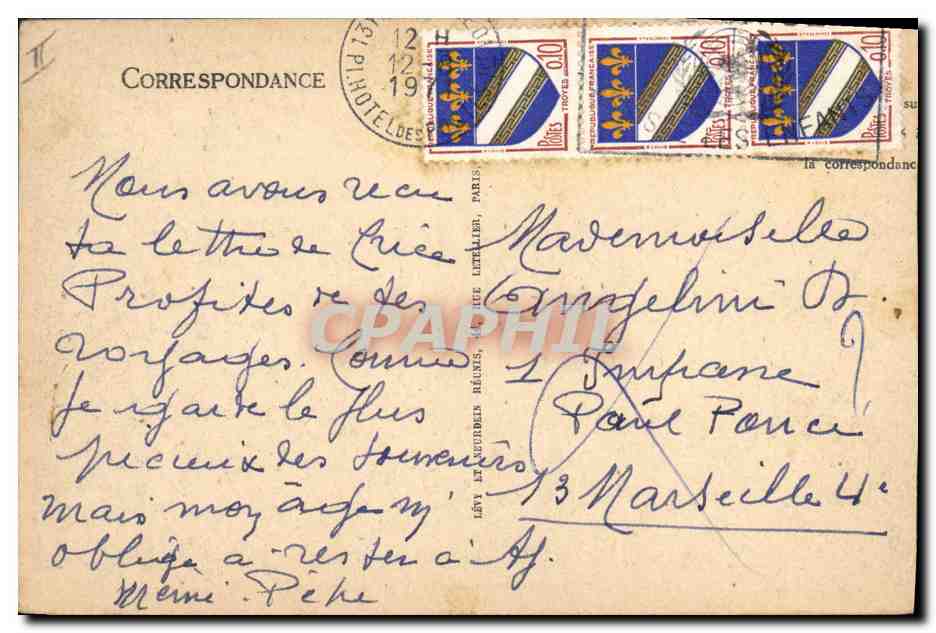 II
CORRESPONDANCE
13
PL. HOTEL DES
12 H
12
19
RÉPUBLIQUE FRANÇAISE
0,10
POSTES TROYES
RÉPUBLIQUE FRANÇAISE
0,10
POSTES TROYES
RÉPUBLIQUE FRANÇAISE
0,10
POSTES TROYES
ENFANTS
su
la correspondance
Nous avons recu
ta lettre de
Profites de tes
voyages. Comme
Je garde le Plus
precieux des souvenirs
mais mon âge m'
oblige a rester à
Mémé. Pépé
LÉVY ET NEURDEIN RÉUNIS, 44, RUE LETELLIER, PARIS
Mademoiselle
Angelini D.
1 Impasse
Paul Ponce ?
13 Marseille 4e
CPAPHIL